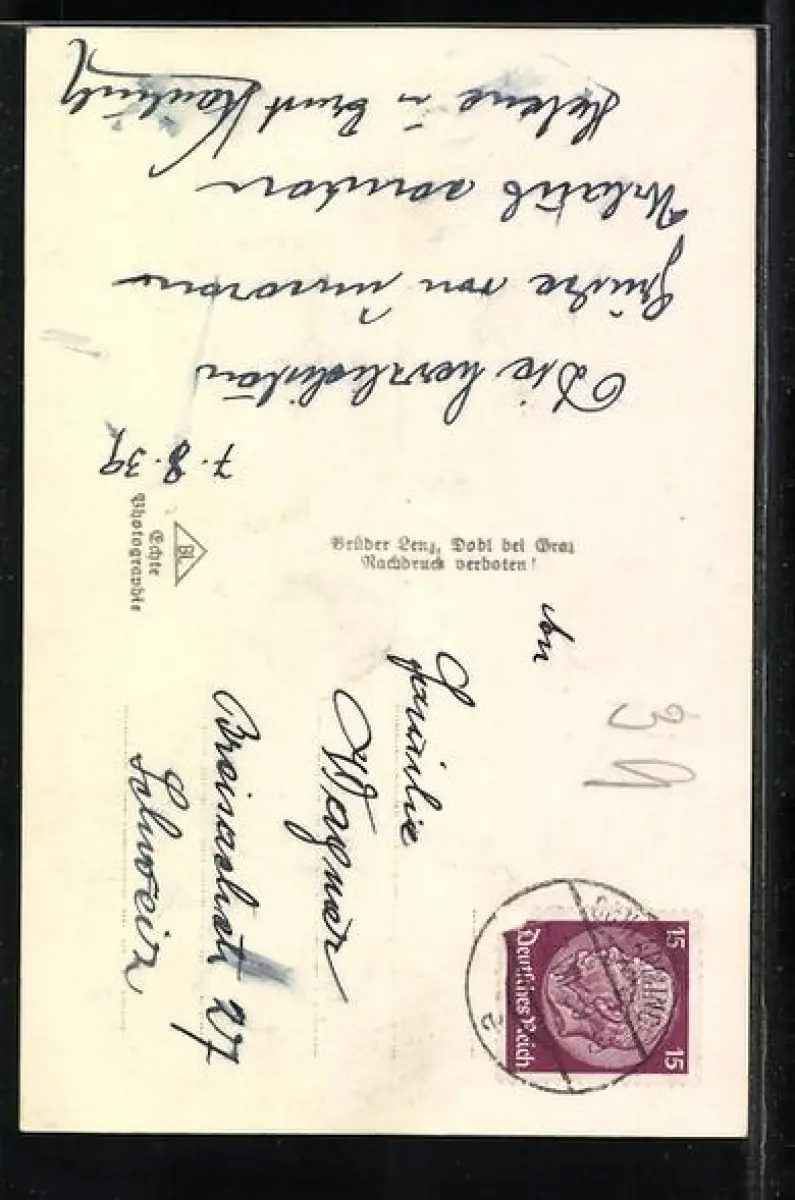 7.8.39
Die herzlichsten
Grüsse von unserem
Urlaub senden
Helene u Ernst
Echte
Photographie
BL
Brüder Lenz, Dobl bei Graz
Nachdruck verboten!
An
Familie
Wagner
27
Schweiz
39
15
15
Deutsches Reich